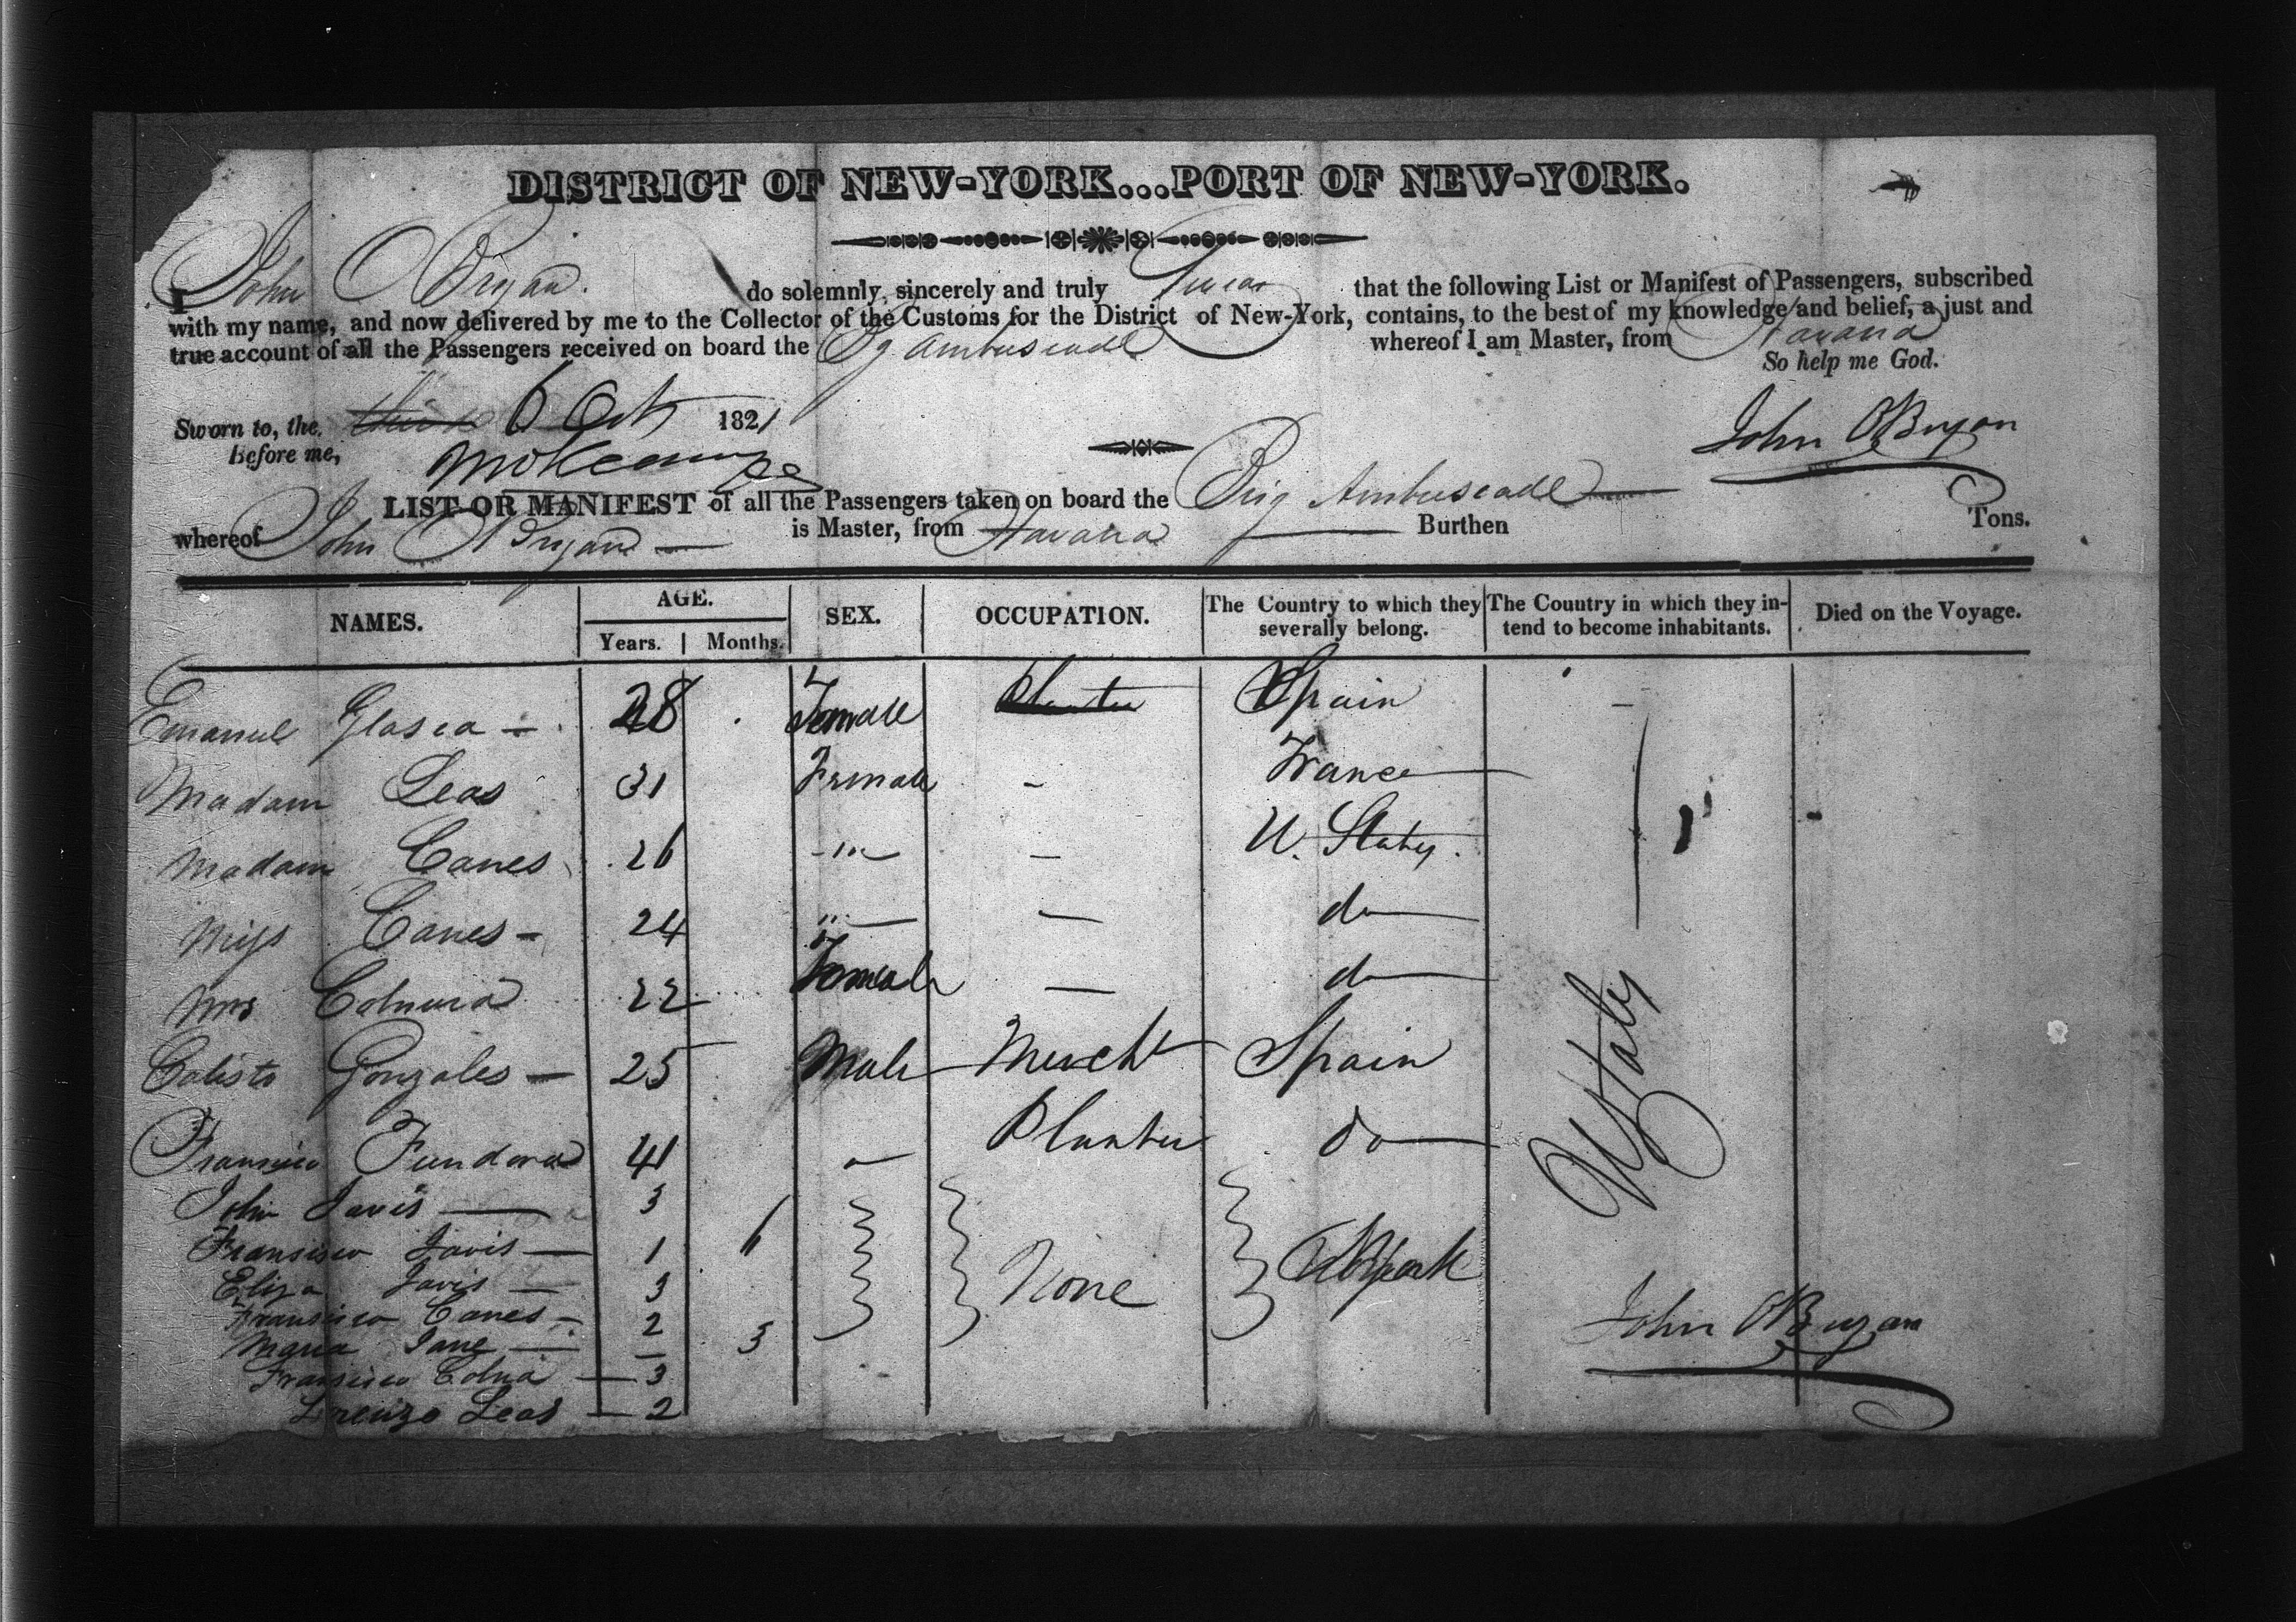 DISTRICT OF NEW-YORK...PORT OF NEW-YORK.
I John OBryan. do solemnly, sincerely and truly Swear that the following List or Manifest of Passengers, subscribed
with my name, and now delivered by me to the Collector of the Customs for the District of New-York, contains, to the best of my knowledge and belief, a just and
true account of all the Passengers received on board the Bg Ambuscade whereof I am Master, from Havana
So help me God.
Sworn to, the 6 Oct 1821
Before me,
John OBryan
LIST OR MANIFEST of all the Passengers taken on board the Brig Ambuscade
whereof John OBryan is Master, from Havana Burthen Tons.
NAMES. AGE. SEX. OCCUPATION. The Country to which they severally belong. The Country in which they intend to become inhabitants. Died on the Voyage.
Years. Months.
Emanuel Glasca 28 Female Planter Spain
Madam Leas 31 Female - France
Madam Canes 26 " — U. States
Miss Canes 24 " — do
Mrs Colmura 22 Female — do
Calisto Gonzales 25 Male Mercht Spain
Fransisco Fundora 41 Planter do
John Javis 3
Fransisco Javis 1 6
Eliza Javis 3 None
Fransisco Canes 2
Maria Jane — 3
Fransisco Colna 3
Lorenzo Leas 2
U States
John OBryan